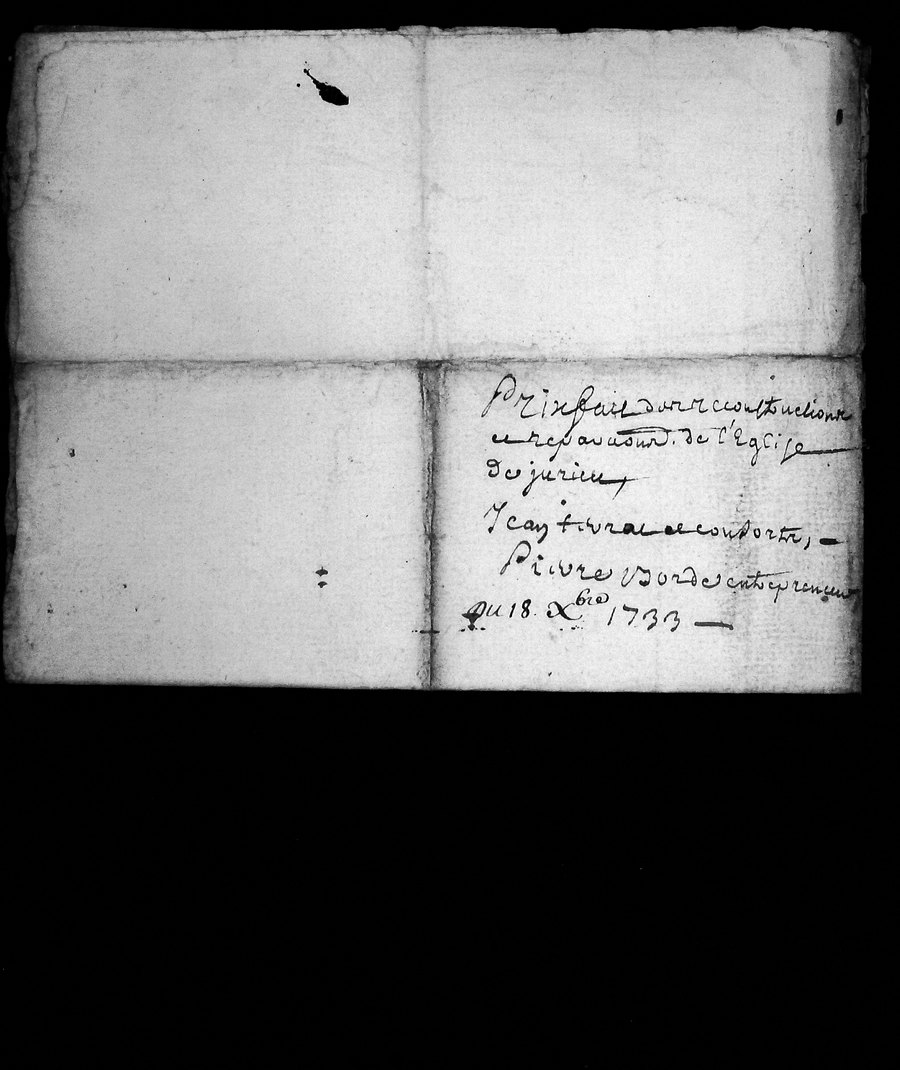 Prixfait des reconstructions
et reparaons. de l'Eglise
de jurieu,
Jean et consorts,
Pierre Borde entrepreneur
Du 18. Xbre 1733